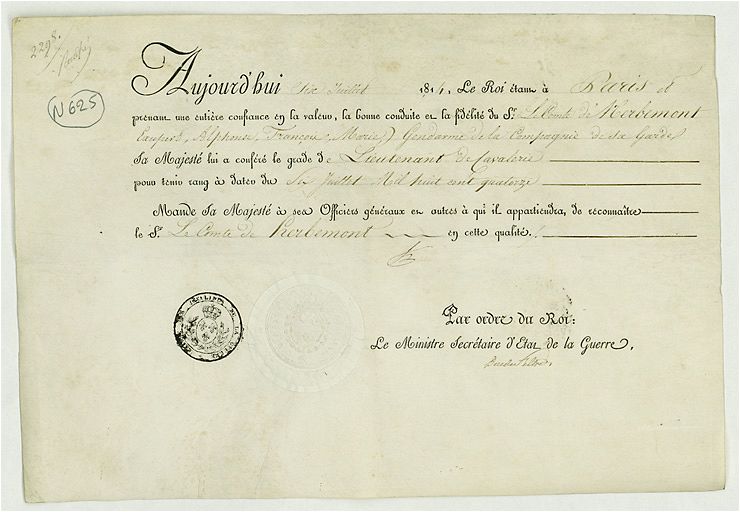 2298.
N 625
Aujourd'hui Six Juillet 1814, Le Roi étant à Paris et
prenant une entière confiance en la valeur, la bonne conduite et la fidélité du Sr. Le Comte de Kerbemont
Alphonse, François, Marie) Gendarme de la Compagnie de sa Garde
Sa Majesté lui a conféré le grade de Lieutenant de Cavalerie
pour tenir rang à dater du Six Juillet Mil huit cent quatorze
Mande Sa Majesté à ses Officiers généraux et autres à qu'il appartiendra, de reconnaître
le Sr. Le Comte de Kerbemont en cette qualité.
Par ordre du Roi:
Le Ministre Secrétaire d'Etat de la Guerre,